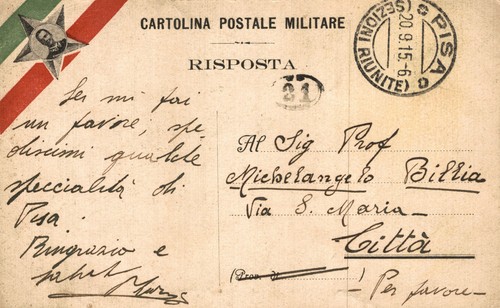 CARTOLINA POSTALE MILITARE
RISPOSTA
PISA
(SEZIONI RIUNITE)
20.9.15-6
31
Se mi fai
un favore, spe
discimi qualche
specialità di
Pisa.
Ringrazio e
saluti
Al Sig Prof
Michelangelo Billia
Via S. Maria
Città
(Prov. di
Per favore